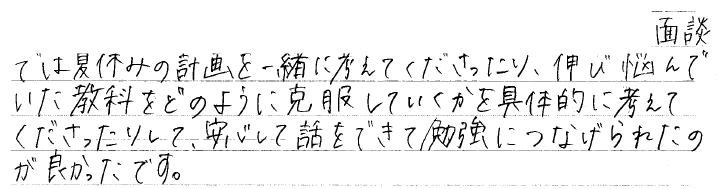 面談
では夏休みの計画を一緒に考えてくださったり、伸び悩んで
いた教科をどのように克服していくかを具体的に考えて
くださったりして、安心して話をできて勉強につなげられたの
が良かったです。